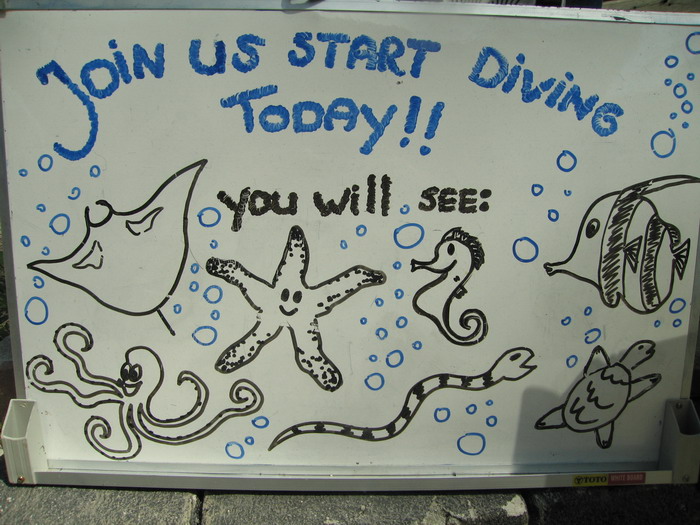 JOiN US START DiViNG
TODAY!!
you will SEE:
TOTO WHITE BOARD